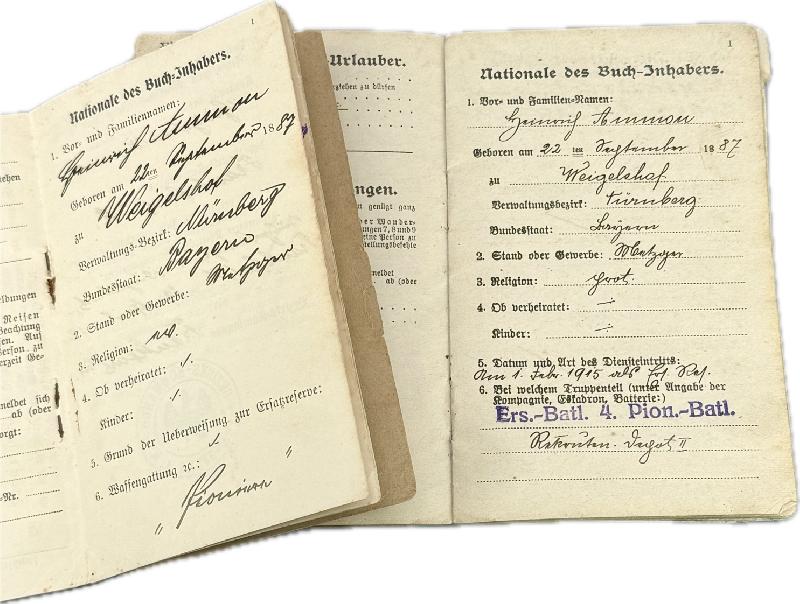 1
Nationale des Buch-Inhabers.
1. Vor- und Familiennamen:
Heinrich Ammon
Geboren am 22ten September 1887
zu Weigelshof
Verwaltungs-Bezirk: Nürnberg
Bundesstaat: Bayern
2. Stand oder Gewerbe: Metzger
3. Religion:
4. Ob verheiratet:
Kinder:
5. Grund der Ueberweisung zur Ersatzreserve:
6. Waffengattung ec.:
" Pioniere "
ldungen
Reisen
Beachtung
en. Auf
Person zu
erzeit Ge-
meldet sich
ab (oder
orgt:
-Nr.
Urlauber.
rziehen zu dürfen
ngen.
n genügt ganz
er Wander-
ungen 7, 8 und 9
eine Person zu
stellungsbefehle
meldet
ab (oder
1
Nationale des Buch-Inhabers.
1. Vor- und Familien-Namen:
Heinrich Ammon
Geboren am 22 ten September 1887
zu Weigelshof
Verwaltungsbezirk: Nürnberg
Bundesstaat: Bayern
2. Stand oder Gewerbe: Metzger
3. Religion: prot.
4. Ob verheiratet: -
Kinder: -
5. Datum und Art des Diensteintritts:
Am 1. Febr. 1915 als Ers. Res.
6. Bei welchem Truppenteil (unter Angabe der
Kompagnie, Eskadron, Batterie:)
Ers.-Batl. 4. Pion.-Batl.
Rekruten Depot II